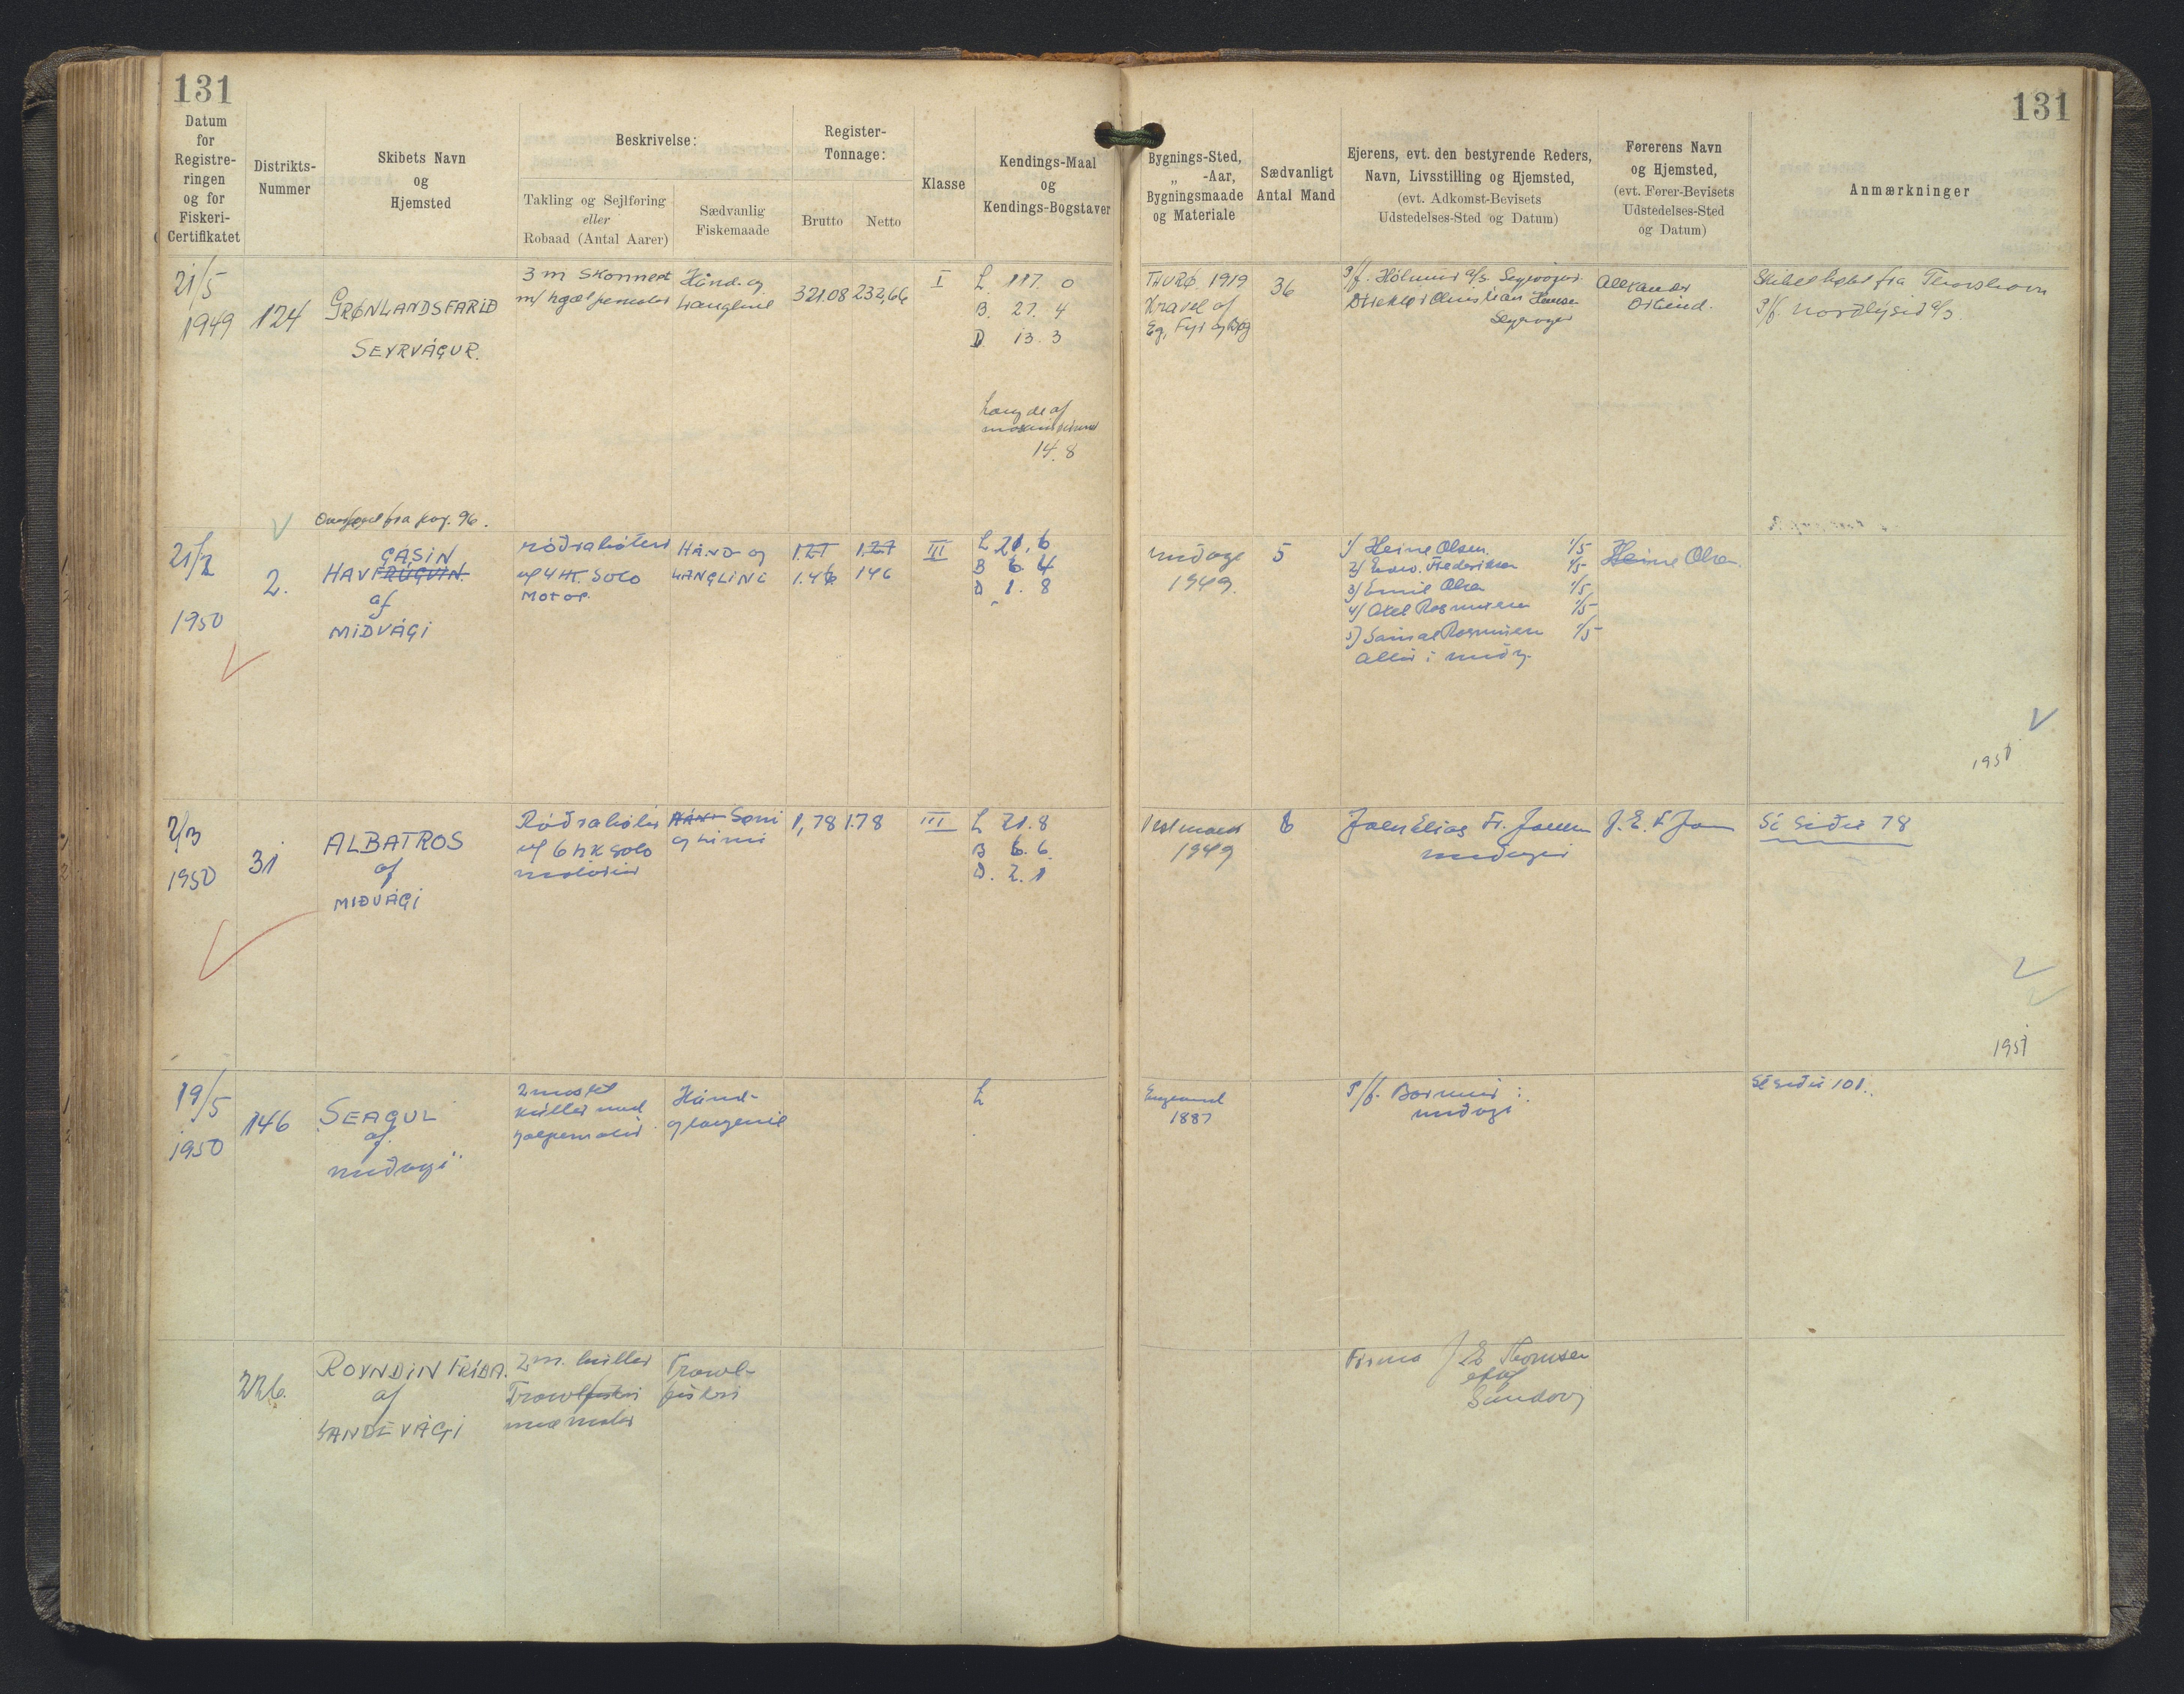 131
131
Datum
for
Registre-
ringen
og for
Fiskeri-
Certifikatet
Distrikts-
Nummer
Skibets Navn
og
Hjemsted
Beskrivelse:
Takling og Sejlføring
eller
Robaad (Antal Aarer)
Sædvanlig
Fiskemaade
Register-
Tonnage:
Brutto
Netto
Klasse
Kendings-Maal
og
Kendings-Bogstaver
Bygnings-Sted,
„ -Aar,
Bygningsmaade
og Materiale
Sædvanligt
Antal Mand
Ejerens, evt. den bestyrende Reders,
Navn, Livsstilling og Hjemsted,
(evt. Adkomst-Bevisets
Udstedelses-Sted og Datum)
Førerens Navn
og Hjemsted,
(evt. Fører-Bevisets
Udstedelses-Sted
og Datum)
Anmærkninger
21/5
1949
124
GRØNLANDSFARID
SEYRVÁGUR.
3 m Skonnert
m/ hjælpemotor
Haand- og
Langline
321.08
232,66
I
L. 117. 0
B. 27. 4
D. 13. 3
Længde af
maskinrummet
14. 8
THURØ 1919
Kravel af
Eg, Fyr og Bøg
36
P/f. Hólmur A/S. Seyrvágur
Direktør Christian Hansen
Seyrvágur
Alexander
Østlind.
Skibet købt fra Thorshavn
P/f. Norðlýsið A/S.
Overført fra pag. 96.
21/2
1950
2.
GÁSIN
HAVFRÚGVIN.
af
MIÐVÁGI
róðrabátur
m/ 4 HK. SOLO
MOTOR.
HAND- og
LANGLINE
1.27
1.27
1.46
1.46
III
L 21. 6
B 6. 4
D 1. 8
Miðvági
1949.
5
1) Heine Olsen. 1/5
2) Edw. Frederiksen 1/5
3) Emil Olsen 1/5
4) Axel Rasmussen 1/5
5) Sámal Rasmussen 1/5
Allir í Miðv.
Heine Olsen.
1951
2/3
1950
31
ALBATROS
af
MIÐVÁGI
Róðrabátur
m/ 6 HK Solo
motorur
HAND- Snøri
og Línu
1,78
1.78
III
L 21. 8
B 6. 6.
D. 2. 1
Vestmanna
1949
6
Jóen Elias Fr. Joensen
Miðvági
J. E. F. Joen
Sí Síðu 78
1951
19/5
1950
146
SEAGUL
af.
Miðvági
2 mastet
kutter med
hjælpemotor
Haand-
og langline
L
England
1887
P/f. Bormur í
Miðvági
Sí síðu 101.
226.
ROYNDIN FRÍÐA.
af
SANDEVÁGI
2 m. kutter
Trawlfiskeri
með motor
Trawl-
fiskeri
Firma J. E. Thomsen
eftf
Sandavág